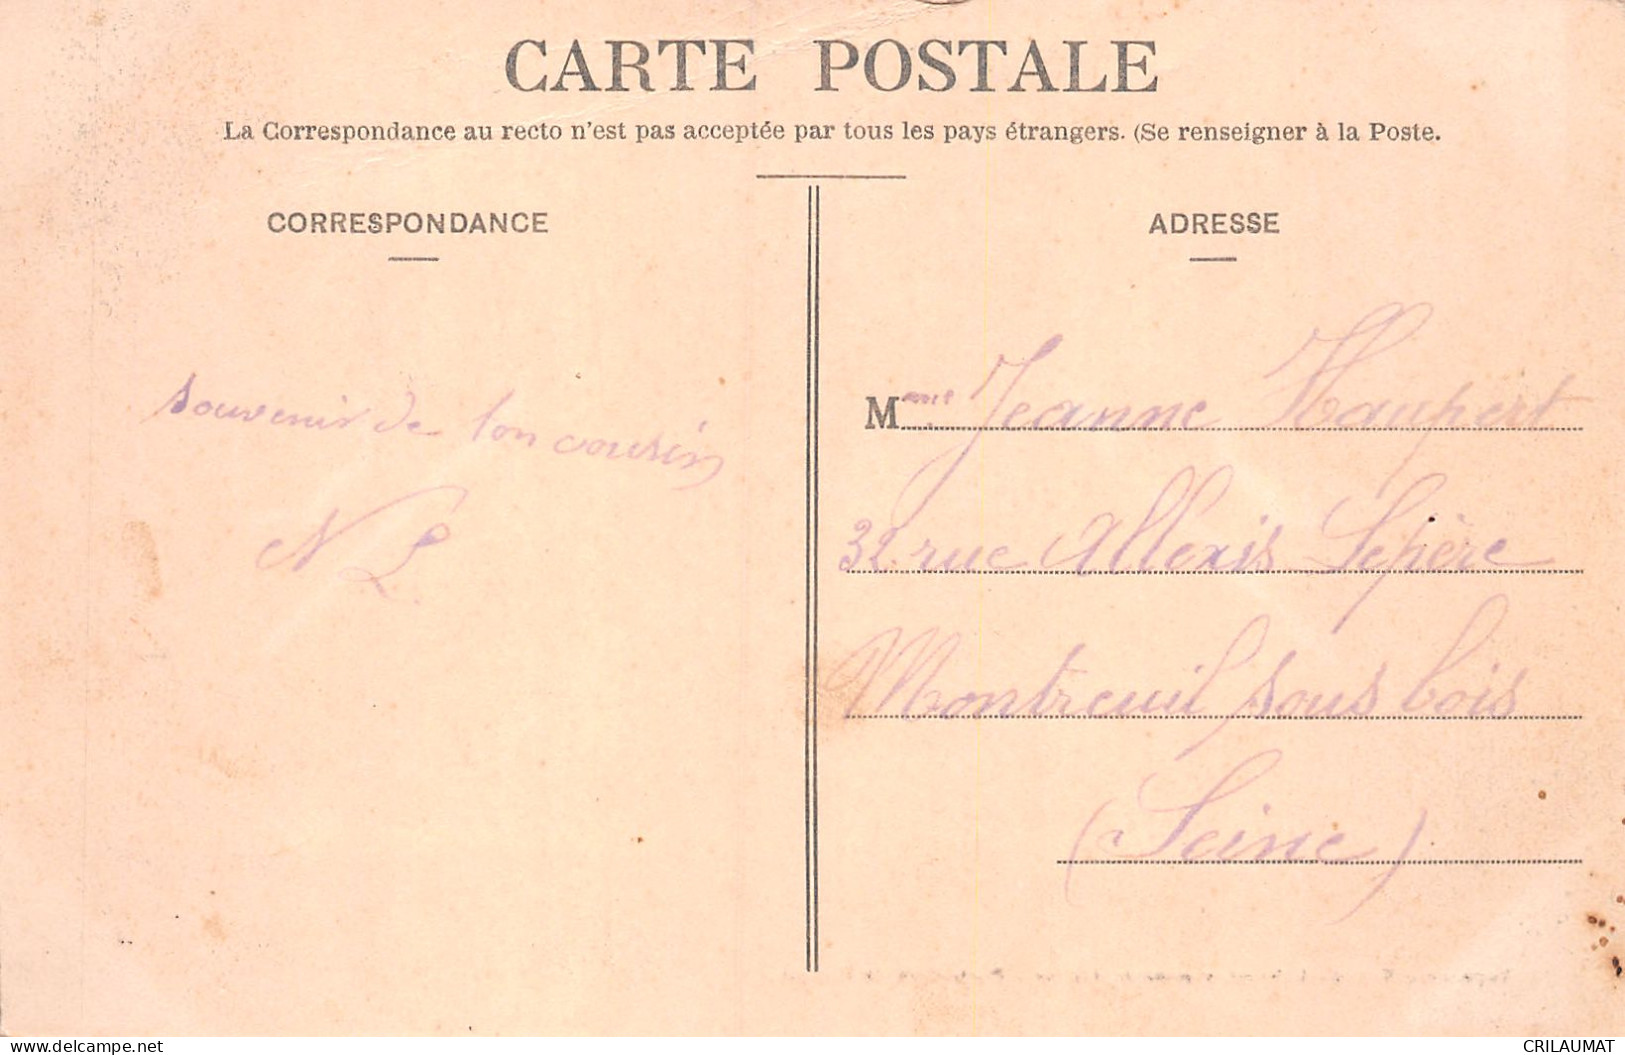 CARTE POSTALE
La Correspondance au recto n'est pas acceptée par tous les pays étrangers. (Se renseigner à la Poste.
CORRESPONDANCE
souvenir de ton cousin
N L
ADRESSE
Melle Jeanne Haupert
32 rue Allexis Lepère
Montreuil sous bois
(Seine)
www.delcampe.net
CRILAUMAT